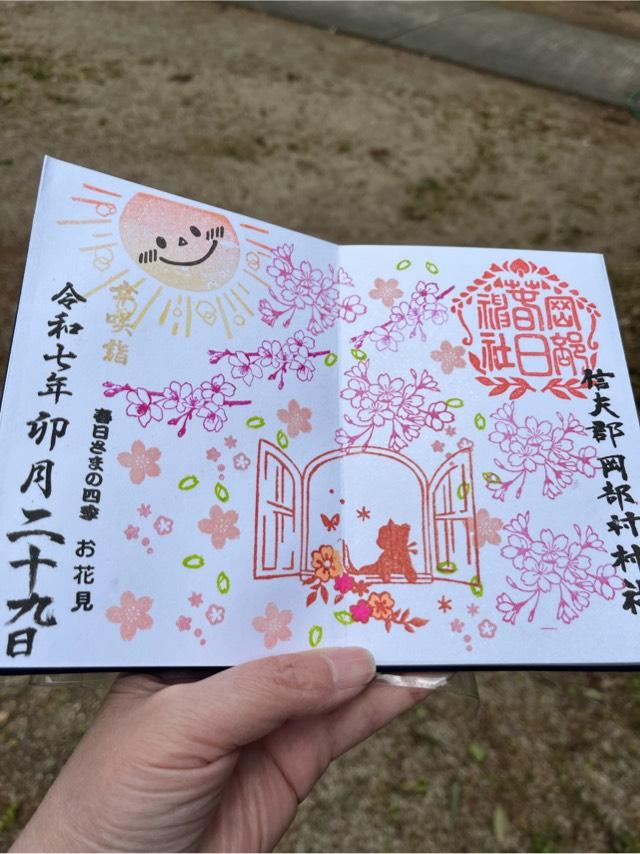 信夫郡岡部村村社
岡部
春日
神社
春日さまの四季 お花見
令和七年 卯月二十九日